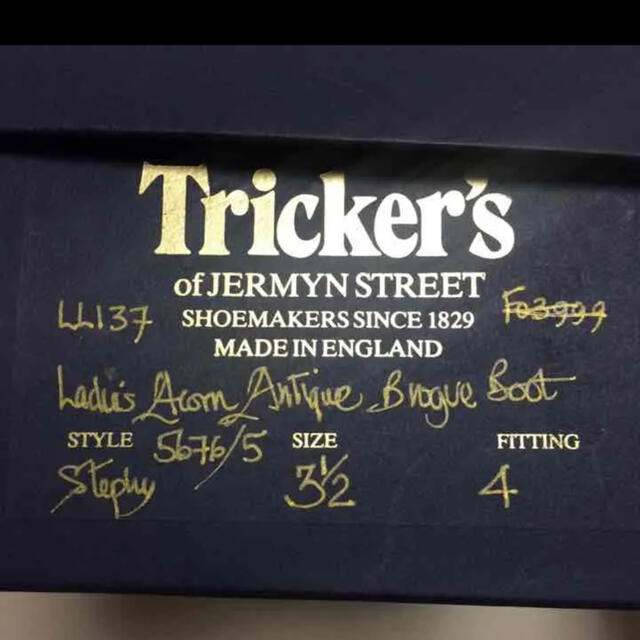 Tricker's
of JERMYN STREET
LL137 SHOEMAKERS SINCE 1829 F03999
MADE IN ENGLAND
Ladies Acorn Antique Brogue Boot
STYLE 5676/5 SIZE FITTING
Stephy 3½ 4